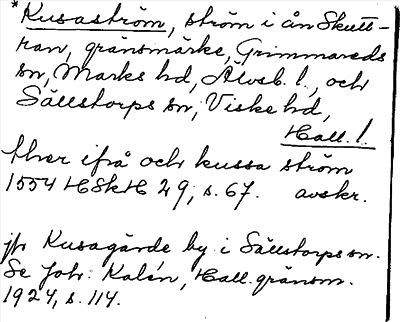 * Kusaström, ström i ån Skutt-
ran, gränsmärke, Grimmareds
sn, Marks hd, Älvsb. l., och
Sällstorps sn, Viske hd,
Hall. l.
thær ifrå och kussa ström
1554 HSkH 29, s. 67. avskr.
jfr Kusagårde by i Sällstorps sn.
Se Joh. Kalén, Hall. gränsm.
1924, s. 114.